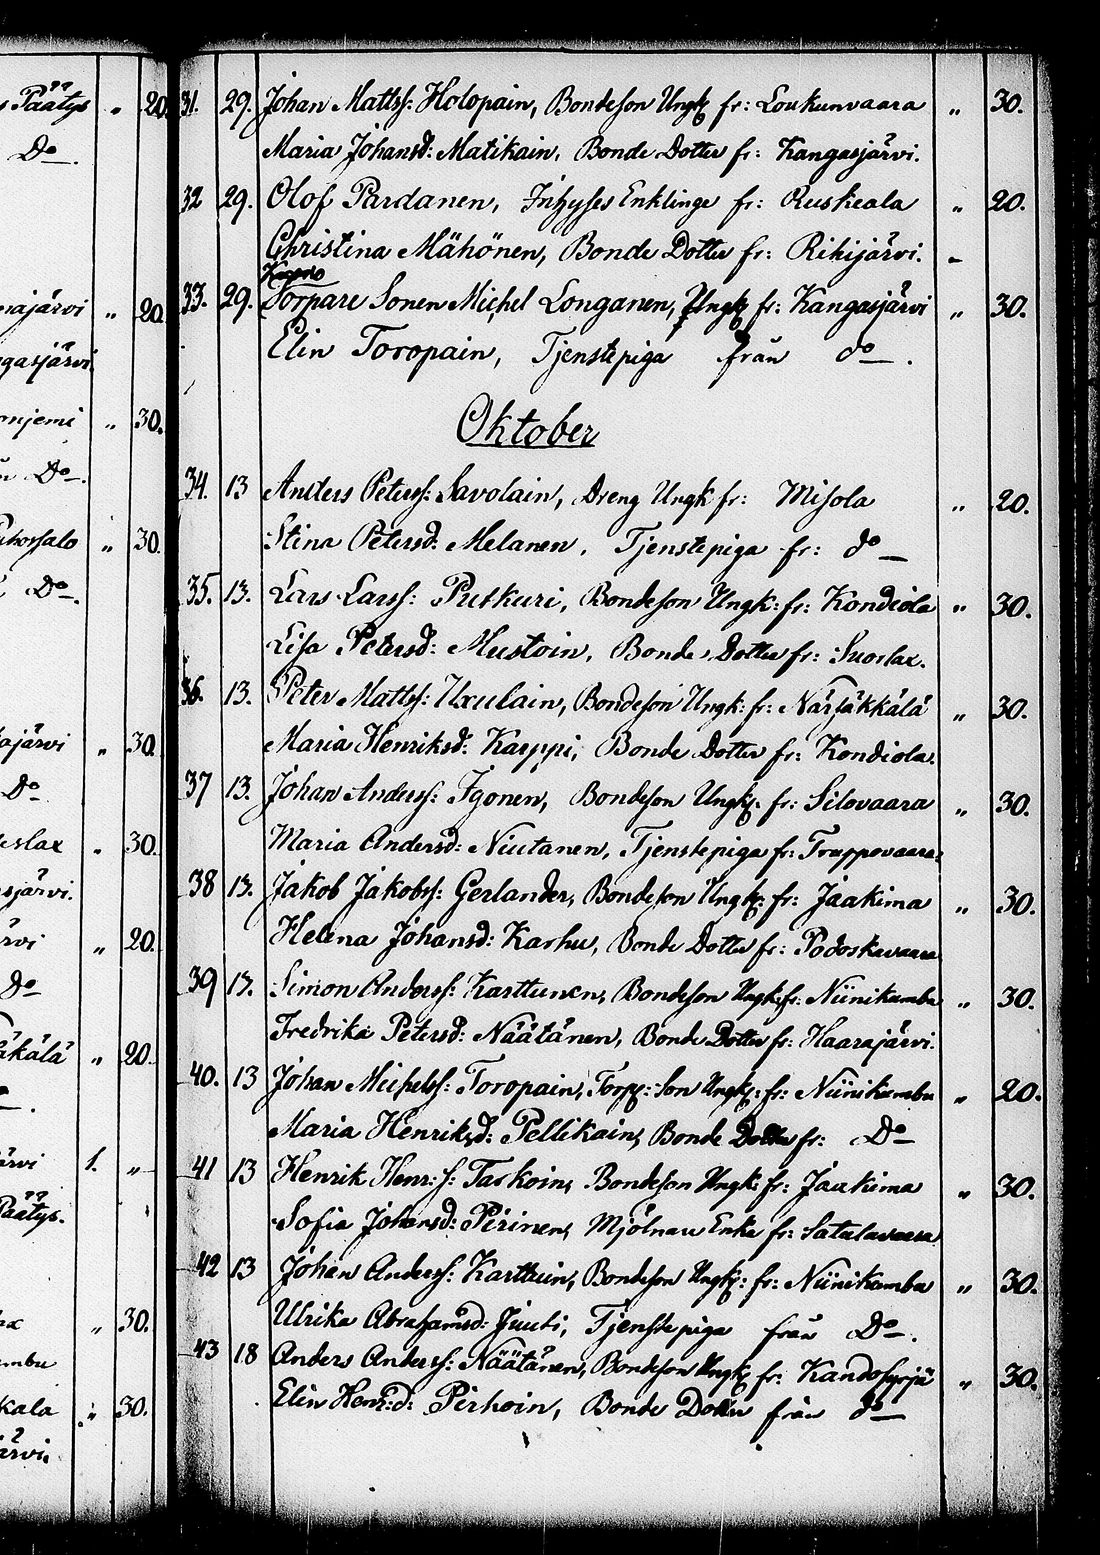 s Päätys " 20.
Do.
najärvi " 20
gasjärvi
mnjemi " 30.
n Do.
uhorsalo " 30.
Do.
ajärvi " 30.
Do
uslax " 30.
sjärvi.
ärvi " 20.
do
äkälä " 20.
ärvi 1. "
Päätys.
ax " 30.
ambu
kala " 30.
ärvi.
31. 29. Johan Mattss: Holopain, Bondeson Ungk fr: Loukunvaara " 30.
Maria Johansd: Matikain, Bonde Dotter fr: Kangasjärvi.
32 29. Olof Pardanen, Inhyses Enklinge fr: Ruskeala " 20.
Christina Mähönen, Bonde Dotter fr: Rihijärvi. -
33. 29. Torpare Sonen Michel Longanen, Ungk fr: Kangasjärvi " 30.
Elin Toropain, Tjenstepiga från do.
Oktober
34. 13 Anders Peterss: Savolain, Dreng Ungk fr: Misola " 20.
Stina Petersd: Melanen, Tjenstepiga fr: do
35. 13. Lars Larss: Putkuri, Bondeson Ungk: fr: Kondiola " 30.
Lisa Petersd: Mustoin, Bonde Dotter fr: Suorlax.
36. 13. Peter Mattss: Uxulain, Bondeson Ungk: fr: Närsäkkälä " 30.
Maria Henriksd: Karppi, Bonde Dotter fr: Kondiola.
37 13. Johan Anderss: Igonen, Bondeson Ungk: fr: Silovaara " 30.
Maria Andersd: Niutanen, Tjenstepiga fr: Truppovaara
38 13. Jakob Jakobss: Gerlander, Bondeson Ungk: fr: Jaakima " 30.
Helena Johansd: Karhu, Bonde Dotter fr: Podoskavaara
39 13. Simon Anderss: Karttunen, Bondeson Ungk: fr: Niinikumbu " 30.
Fredrika Petersd: Näätänen, Bonde Dotter fr: Haarajärvi.
40. 13 Johan Michelss: Toropain, Torp: Son Ungk: fr: Niinikumbu " 20.
Maria Henriksd: Pellikain, Bonde Dotter fr: Do
41 13 Henrik Henr: s: Taskoin, Bondeson Ungk: fr: Jaakima " 30.
Sofia Johansd: Pirinen, Mjölnare Enka fr: Satulavaara
42 13 Johan Anderss: Karttuin, Bondeson Ungk: fr: Niinikumbu " 30.
Ulrika Abrahamsd: Juuti, Tjenstepiga från Do.
43 18 Anders Anderss: Näätänen, Bondeson Ungk fr: " 30.
Elin Henr: d: Pirhoin, Bonde Dotter från do